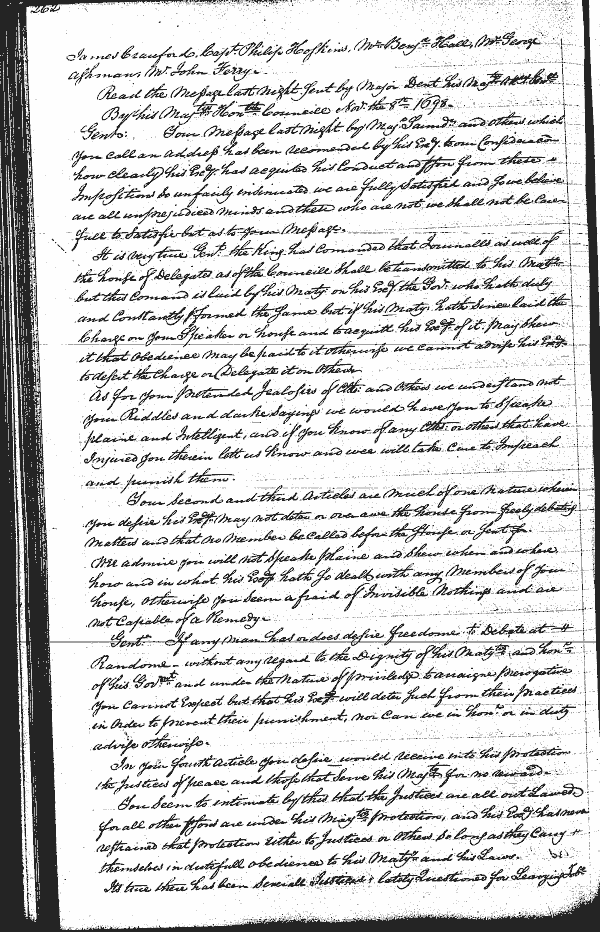 262
James Crauford, Capt Philip Hoskins, Mr Benja Hall, Mr George
Ashman, Mr John Ferry.
Read the Message last Night Sent by Major Dent his Matys
By his Matys Honble Councill Novr the 8th 1698.
Gents. Your Message last Night by Majr Smith and others which
you call an Address has been recomended by his Exy to our Consideracon
how clearly his Exy has acquited his Conduct and from these
Impositions so unfairly insinuated we are fully Satisfied and so we believe
are all unprejudiced minds and those who are not we Shall not be Care
full to Satisfie but as to your Message.
It is very true Gent. the King has Comanded that Journalls as well of
the house of Delegates as of the Councill Shall be transmitted to his Maty
but this Comand is laid by his Maty on his Exy the Govr. who hath duly
and Constantly pformed the Same but if his Maty. hath Since laid the
Charge on your Speaker or house and to acquitt his Exy of it, may Shew
it that Obedience may be paid to it otherwise we cannot advise his Exy
to desert the Charge or Delegate it on Others
As for your Pretended Jealosies of and Others we understand not
your Riddles and darke Sayings we would have you to Speake
plaine and Intelligent, and if you know of any or others that have
Injured you therein lett us know and wee will take Care to Impeach
and punish them.
Your Second and third Articles are much of one Nature wherein
you desire his Exy. may not deter or over awe the house from freely debating
Matters and that no Member be Called before the House or Sent for
We admire you will not Speak plaine and Shew when and where
how and in what his Excy hath So dealt with any Members of your
house, Otherwise you Seem afraid of Invisible Nothings and are
not Capable of a Remedy.
Gent. If any man has or does desire freedome to Debate at
Randome without any regard to the Dignity of his Maty and honr
of his Govmt and under the Nature of priviledge to arraigne Prerogative
you Cannot Expect but that his Exy will deter Such from their practices
in Order to prevent their punishment, nor Can we in honr or in duty
advise otherwise.
In your fourth Article you desire would receive into his Protection
the Justices of peace and those that Serve his Maty for no reward.
You Seem to intimate by this that the Justices are all out Lawed
for all other psons are under his Matys Protection, and his Exy has never
restrained that Protection Either to Justices or Others so long as they Carry
themselves in dutifull obedience to his Matys and his Laws.
Its true there has been Severall Justices lately Questioned for Leavying